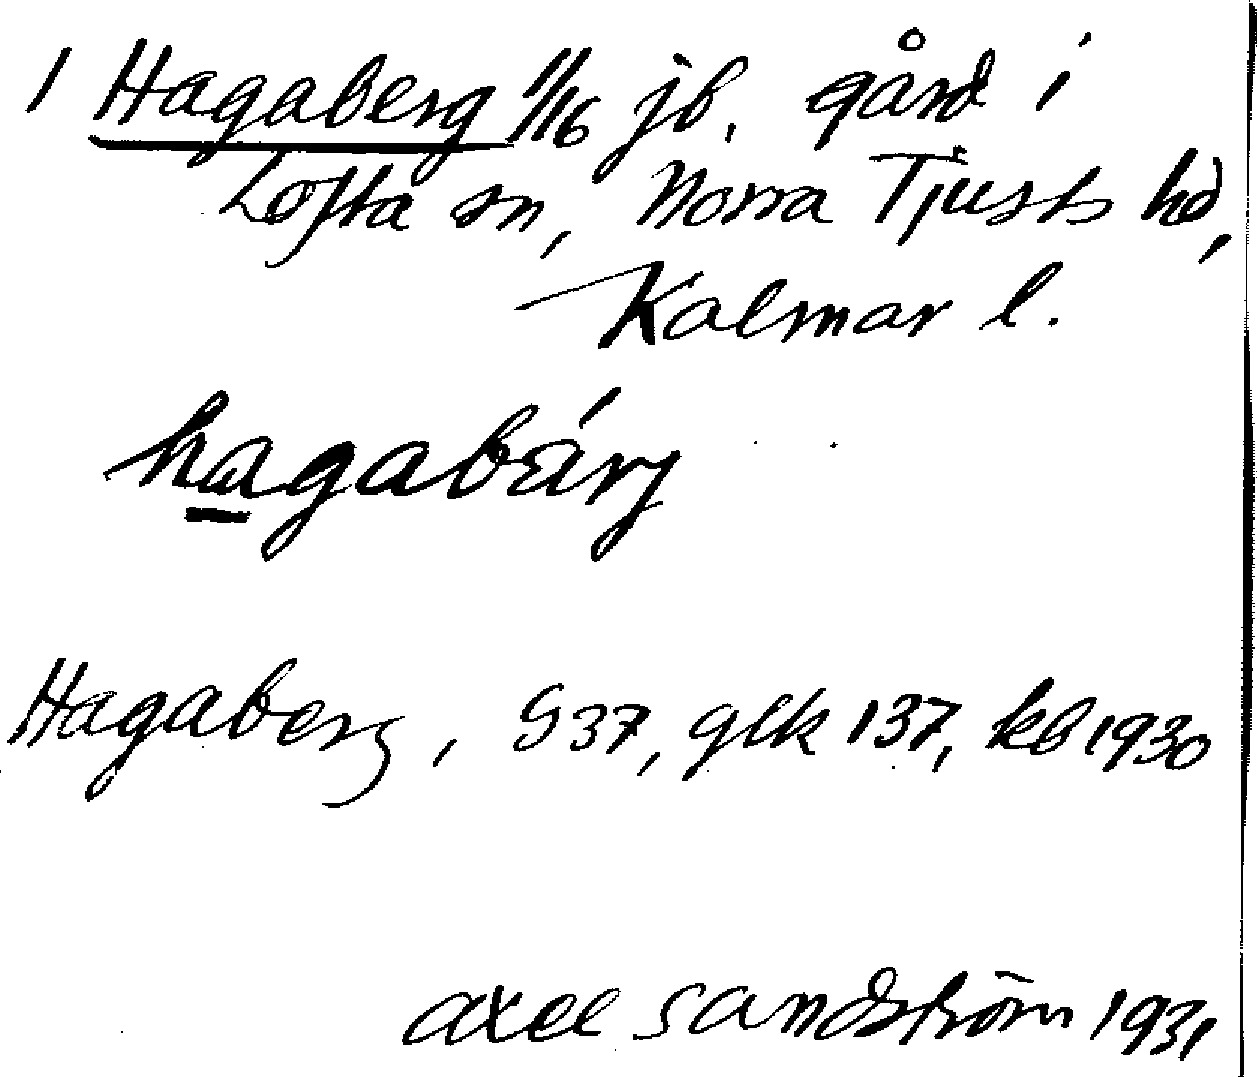 1 Hagaberg 1/16 jb. gård i
Lofta sn, Norra Tjusts hd,
Kalmar l.
hagabärj
Hagaberg, S 37, glk 137, kb 1930
Axel Sandström 1931